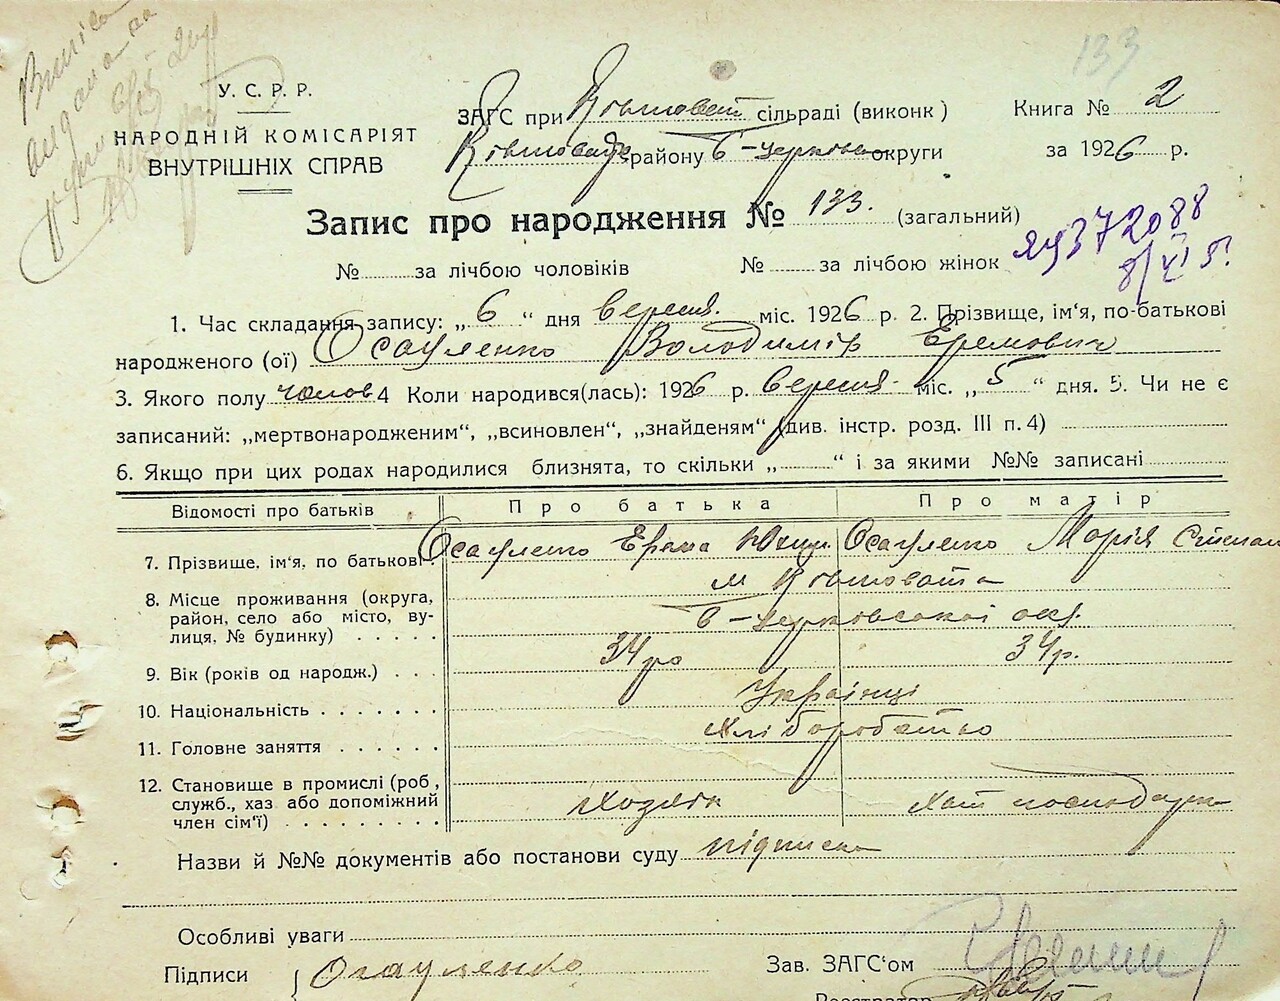 133
У. С. Р. Р.
НАРОДНІЙ КОМІСАРІЯТ
ВНУТРІШНІХ СПРАВ
ЗАГС при Ковшоват сільраді (виконк )
району Б-церковс округи
Книга № 2
за 1926 р.
Запис про народження № 133. (загальний)
№ за лічбою чоловіків № за лічбою жінок
1. Час складання запису: „ 6 “ дня вересня. міс. 1926 р 2. Прізвище, ім‘я, по-батькові
народженого (ої) Осауленко Володимір Еремович
3. Якого полу чолов 4 Коли народився(лась): 1926 р. вересня. міс. „ 5 “ дня. 5. Чи не є
записаний: „мертвонародженим“, „всиновлен“, „знайденям“ (див. інстр. розд. III п. 4)
6. Якщо при цих родах народилися близнята, то скільки „ “ і за якими №№ записані
Відомості про батьків Про батька Про матір
7. Прізвище. ім‘я, по батькові. Осауленко Ерема Осауленко Марія Степан
8. Місце проживання (округа, район, село або місто, вулиця, № будинку)
м Ковшовата
Б-церковської окр.
9. Вік (років од народж.) . . . 34 ро 34 р.
10. Національність . . . . . . . Українці
11. Головне заняття . . . . . . Хліборобство
12. Становище в промислі (роб, служб., хаз або допоміжний член сім‘ї) . . . . . . . . Хозяїн Хат господарка
Назви й №№ документів або постанови суду підписка
Особливі уваги
Підписи Осауленко Зав. ЗАГС‘ом
Реєстратор